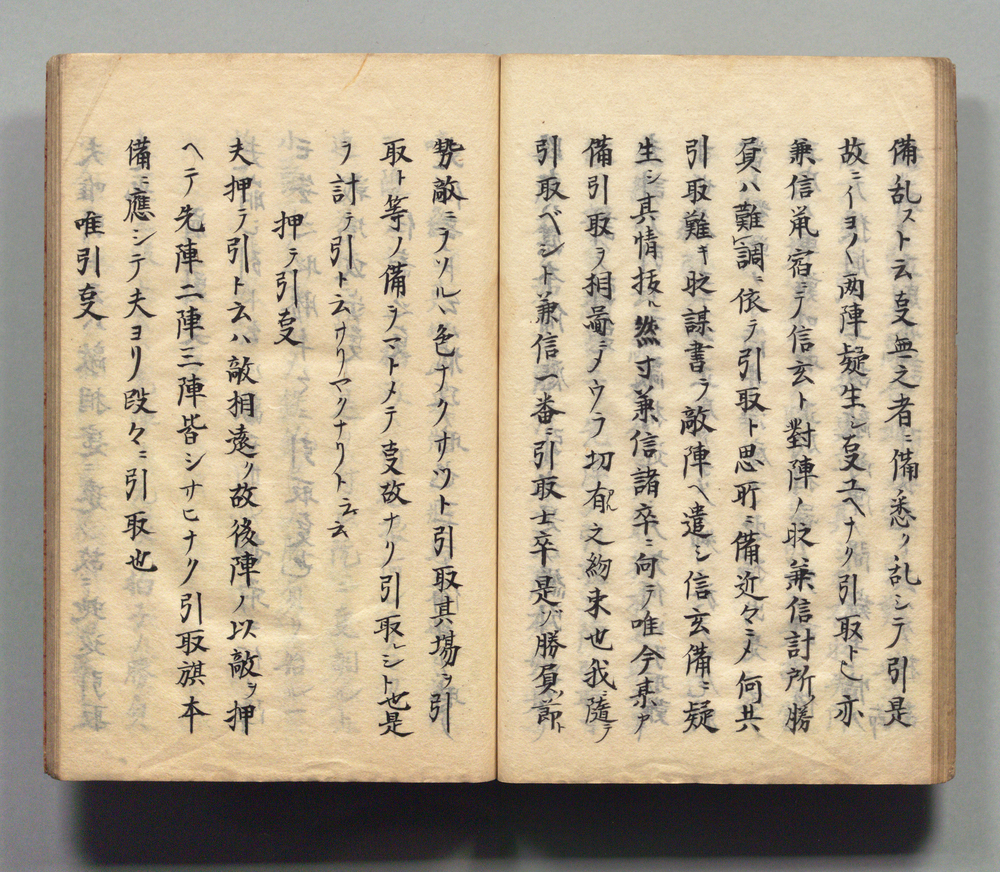 備乱スト云叓無之者ニ備悉ク乱シテ引是
故ニイヨ〱両陣疑生シ叓ユヘナク引取ト亦
兼信 宿ニテ信玄ト對陣ノ時兼信討所ノ勝
負ハ難調ニ依テ引取ト思所ニ備近々ニメ何共
引取難キ時謀書ヲ敵陣ヘ遣シ信玄備ニ疑
生シ其情抜ル然寸兼信諸卒ニ向テ唯今某ア
備引取ヲ相圖ニノウラ切有之約束也我ニ隨テ
引取ベシト兼信一番ニ引取士卒是ヅ勝負ノ節ト
勢敵ニヲソルヽ色ナクサツト引取其場ヲ引
取ト等ノ備ヲマトメテ叓故ナリ引取シト也是
ヲ計テ引ト云 マクナリト云云
押テ引叓
夫押テ引ト云ハ敵相遠ク故後陣ノ以敵ヲ押
ヘテ先陣二陣三陣皆シサヒナク引取旗本
備ニ應シテ夫ヨリ段々ニ引取也
唯引叓